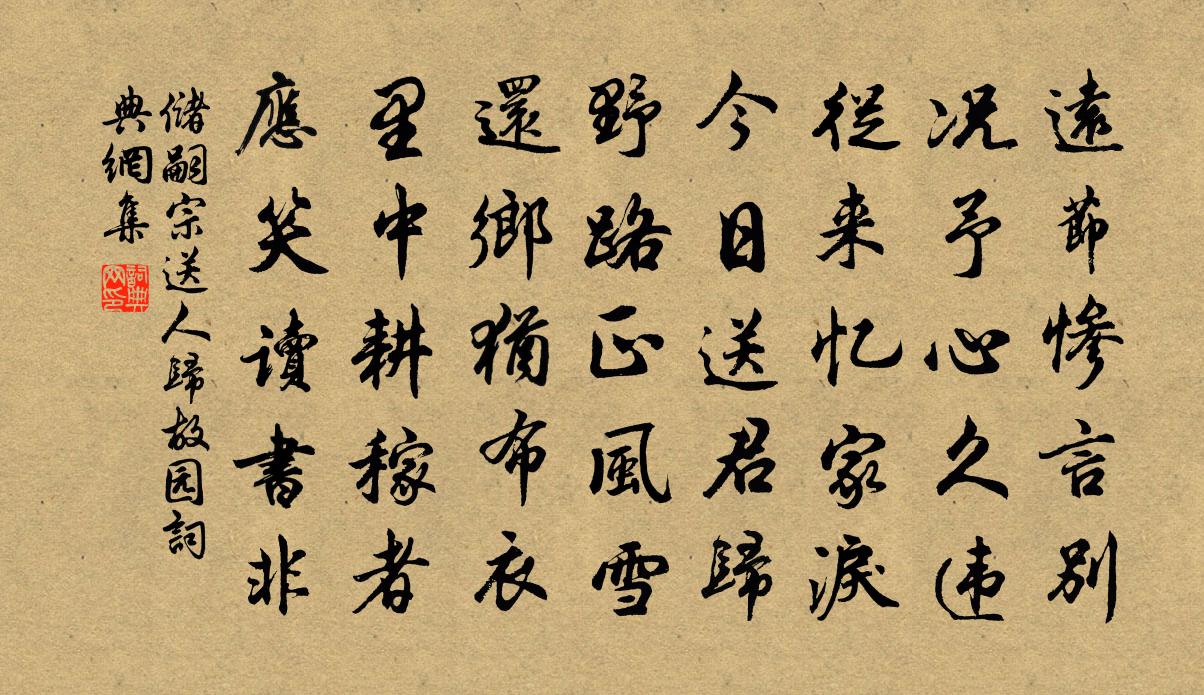 遠節慘言別
况予心久违
從来忆家淚
今日送君歸
野路正風雪
還鄉猶布衣
里中耕稼者
應笑讀書非
儲嗣宗送人歸故园詞
典網集
詞典
网印